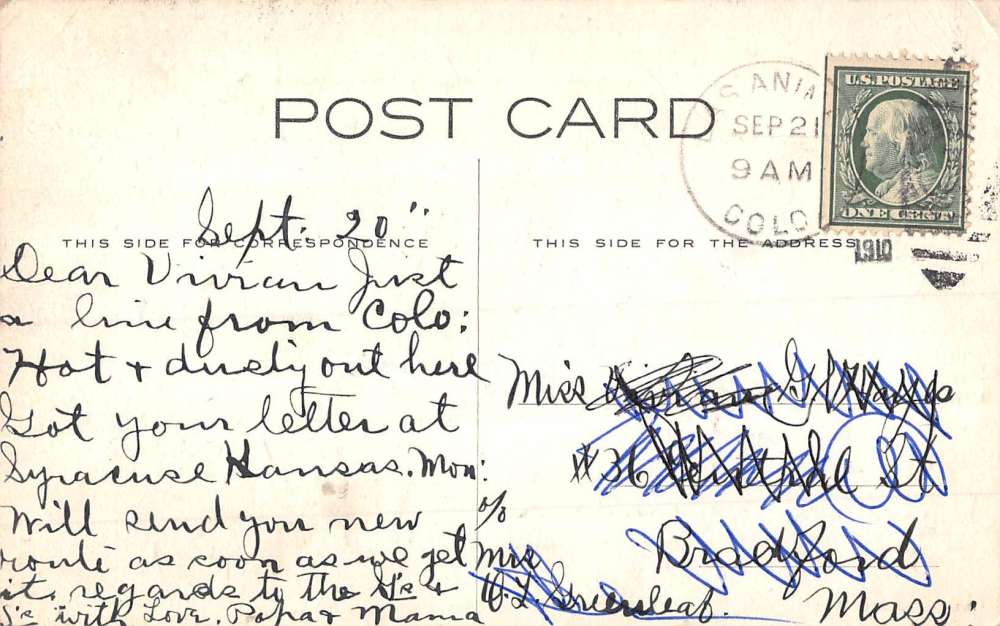 POST CARD
ANIM
SEP 21
9 AM
COLO
1910
U.S. POSTAGE
ONE CENT
THIS SIDE FOR CORRESPONDENCE
THIS SIDE FOR THE ADDRESS
Sept. 20"
Dear Vivian Just
a line from Colo:
Hot + dusty out here
Got your letter at
Syracuse Kansas. Mon:
Will send you new
route as soon as we get
it. regards to the G's +
S's with Love. Papa + Mama
Miss Vivian G
# 36 Central St
Bradford
Mass:
c/o
Mrs
Greenleaf.